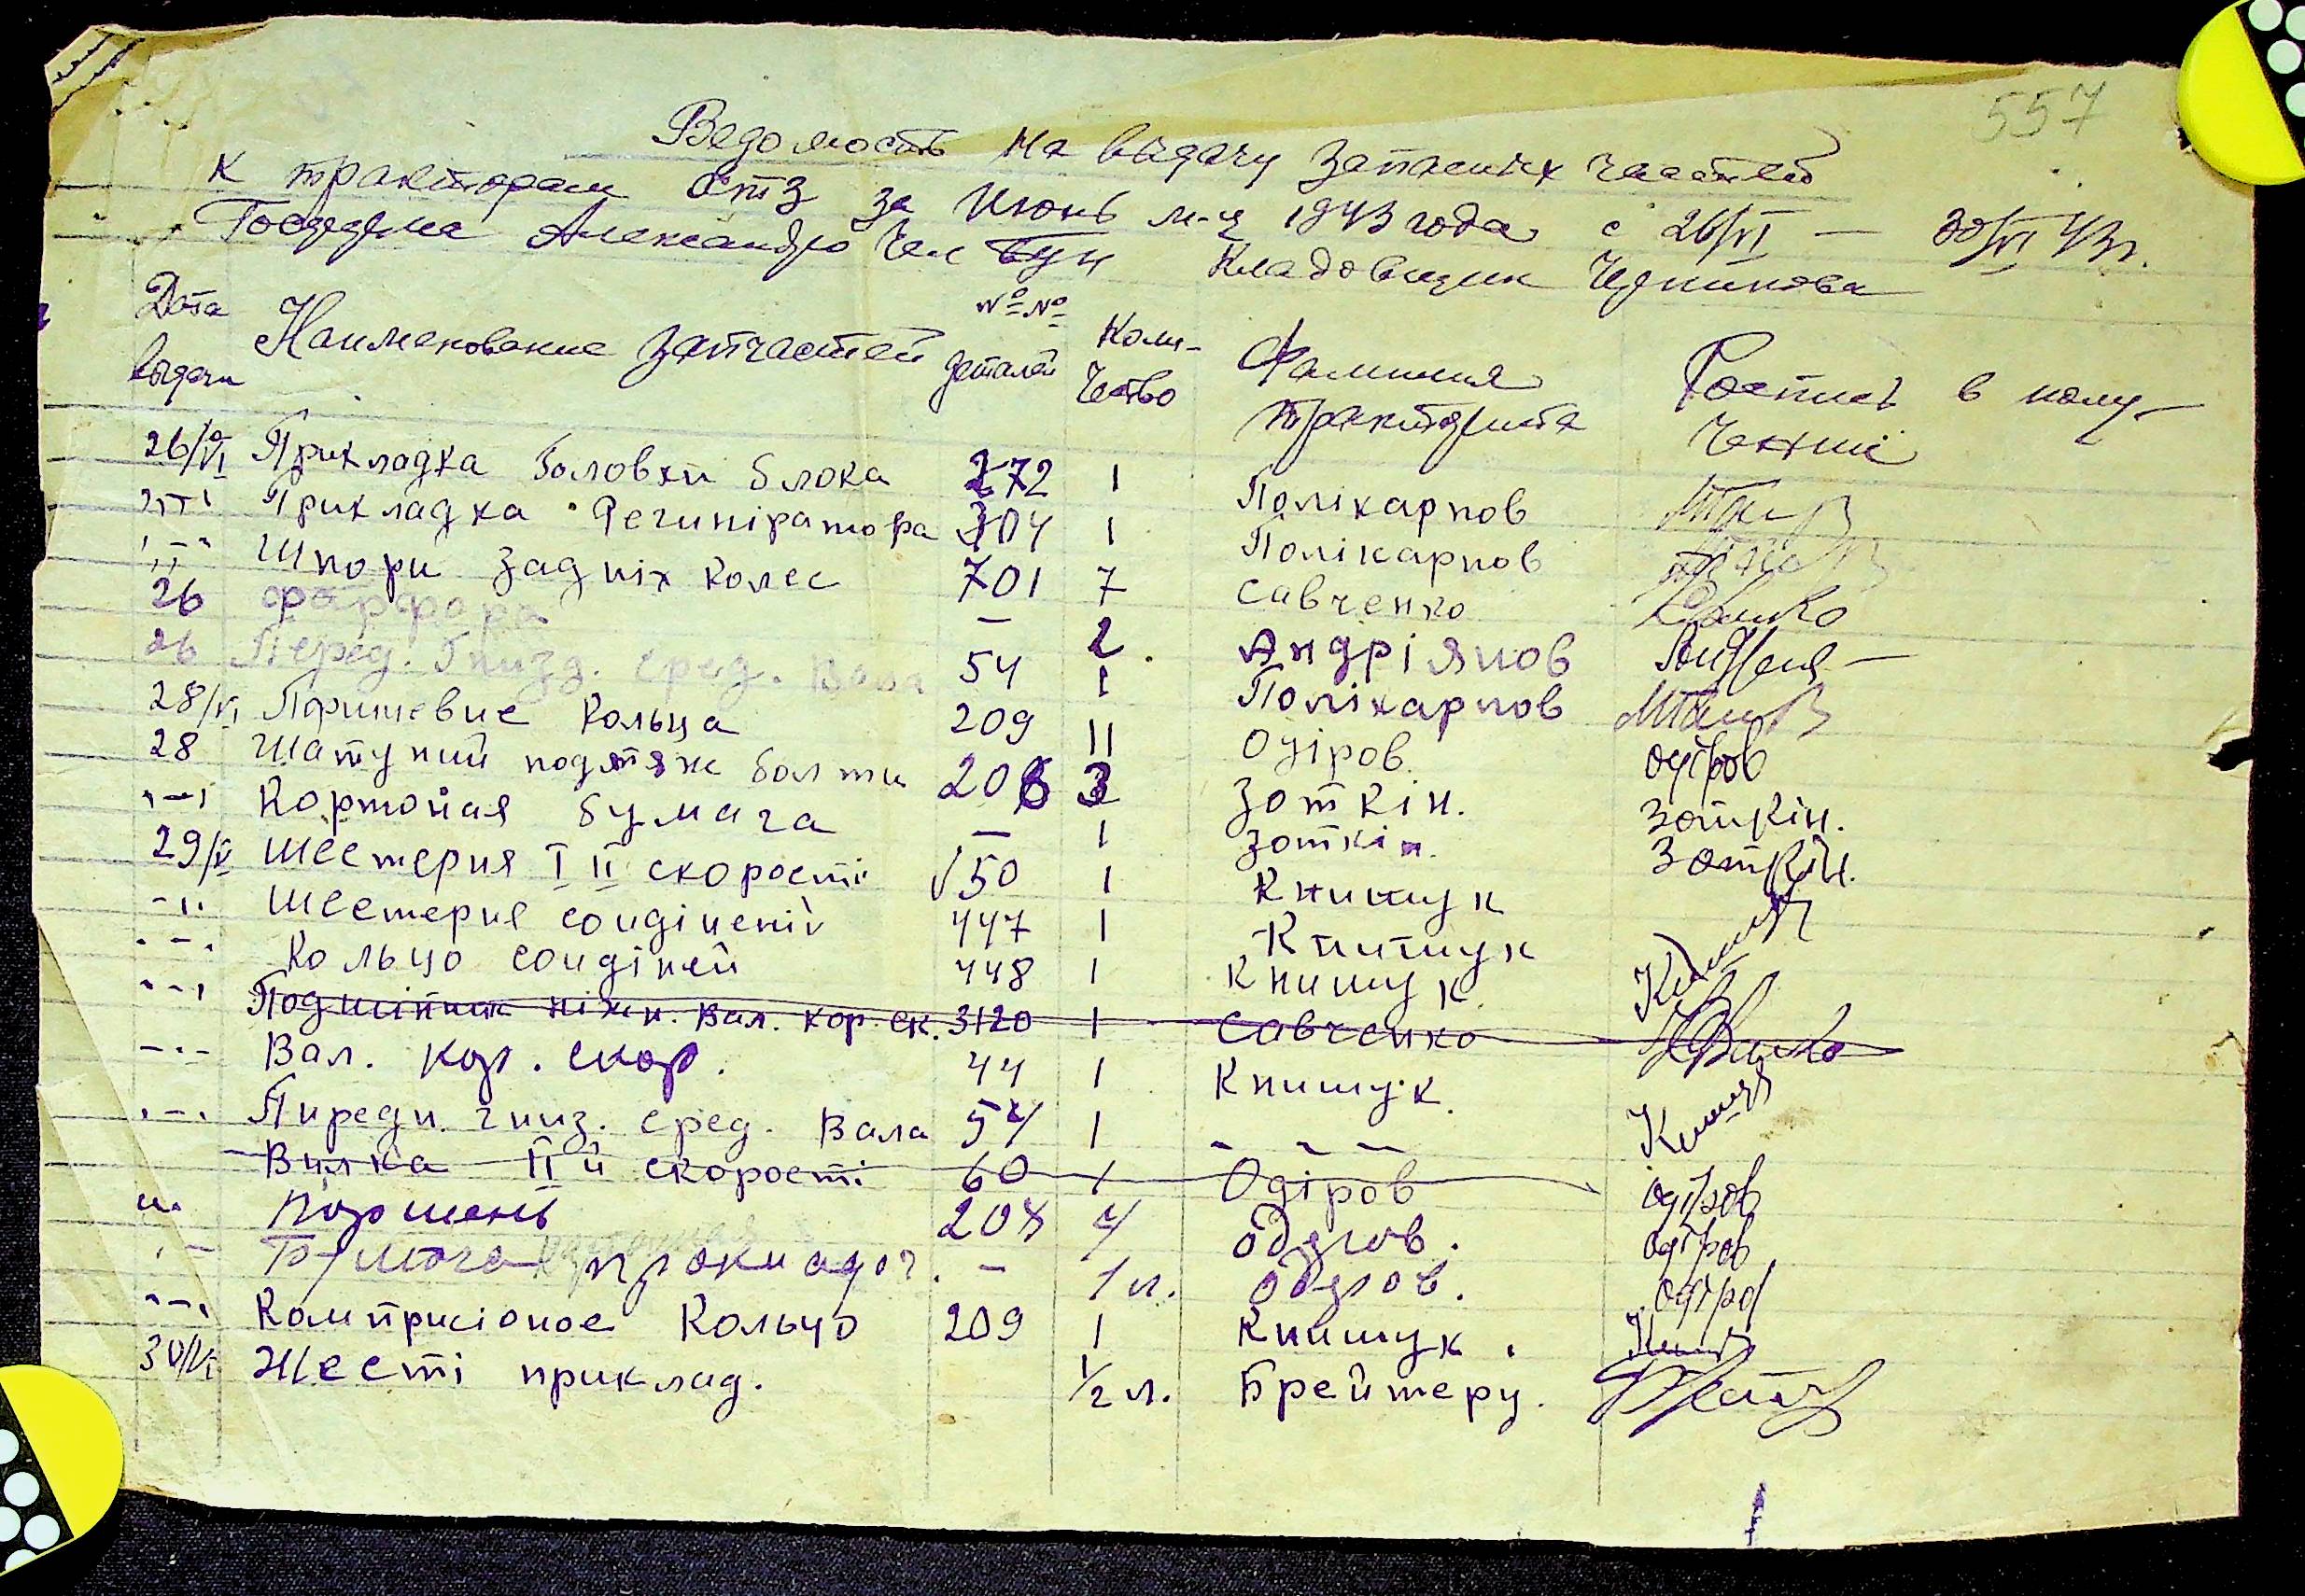 557
Ведомость на выдачу запасних частей
к тракторам СТЗ за Июнь м-ц 1943 года с 26/VI — 30/VI 43г.
Кладовщик
Дата выдачи Наименование запчастей №№ деталей Коли-чество Фамилия тракториста Роспись в полу-чении
26/VI Прикладка Головки блока 272 1 Полікарпов
-"- Прикладка Региніратора 304 1 Полікарпов
-"- Шпори задніх колес 701 7 Савченко
26 фарфора — 2 Андріянов
26 Перед. Гнизд. сред. Вала 54 1 Полікарпов
28/VI Поршневие Кольца 209 11 Одіров. одіров
28 Шатуний подтяж болти 206 3 Зоткін. Зоткін.
-"- Кортоная бумага — 1 Зоткін. Зоткін.
29/VI Шестерня I II скорості √50 1 Книшук
-"- Шестерня соидіненій 447 1 Книшук
-"- Кольцо соидіней 448 1 Книшук
-"- Подшіпник ніжн. Вал. кор. ск. 3120 1 Савченко
-"- Вал. кор. скор. 44 1 Книшук.
-"- Пиредн. гниз. сред. Вала 54 1 - - -
Вилка II й скорості 60 1 Одіров одіров
-"- Поршень 204 4 одіров. одіров
-"- Бумага прокладоч. — 1 л. одіров.
-"- Комприсіоное Кольцо 209 1 Книшук.
30/VI Жесті приклад. 1/2 л. Брейтеру.